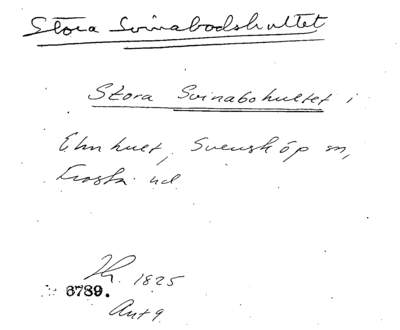 Stora Svinabodshultet
Stora Svinabohultet i
Elmhult, Svensköp sn,
Frosta hd
Jh. 1825
6789.
Akt 9